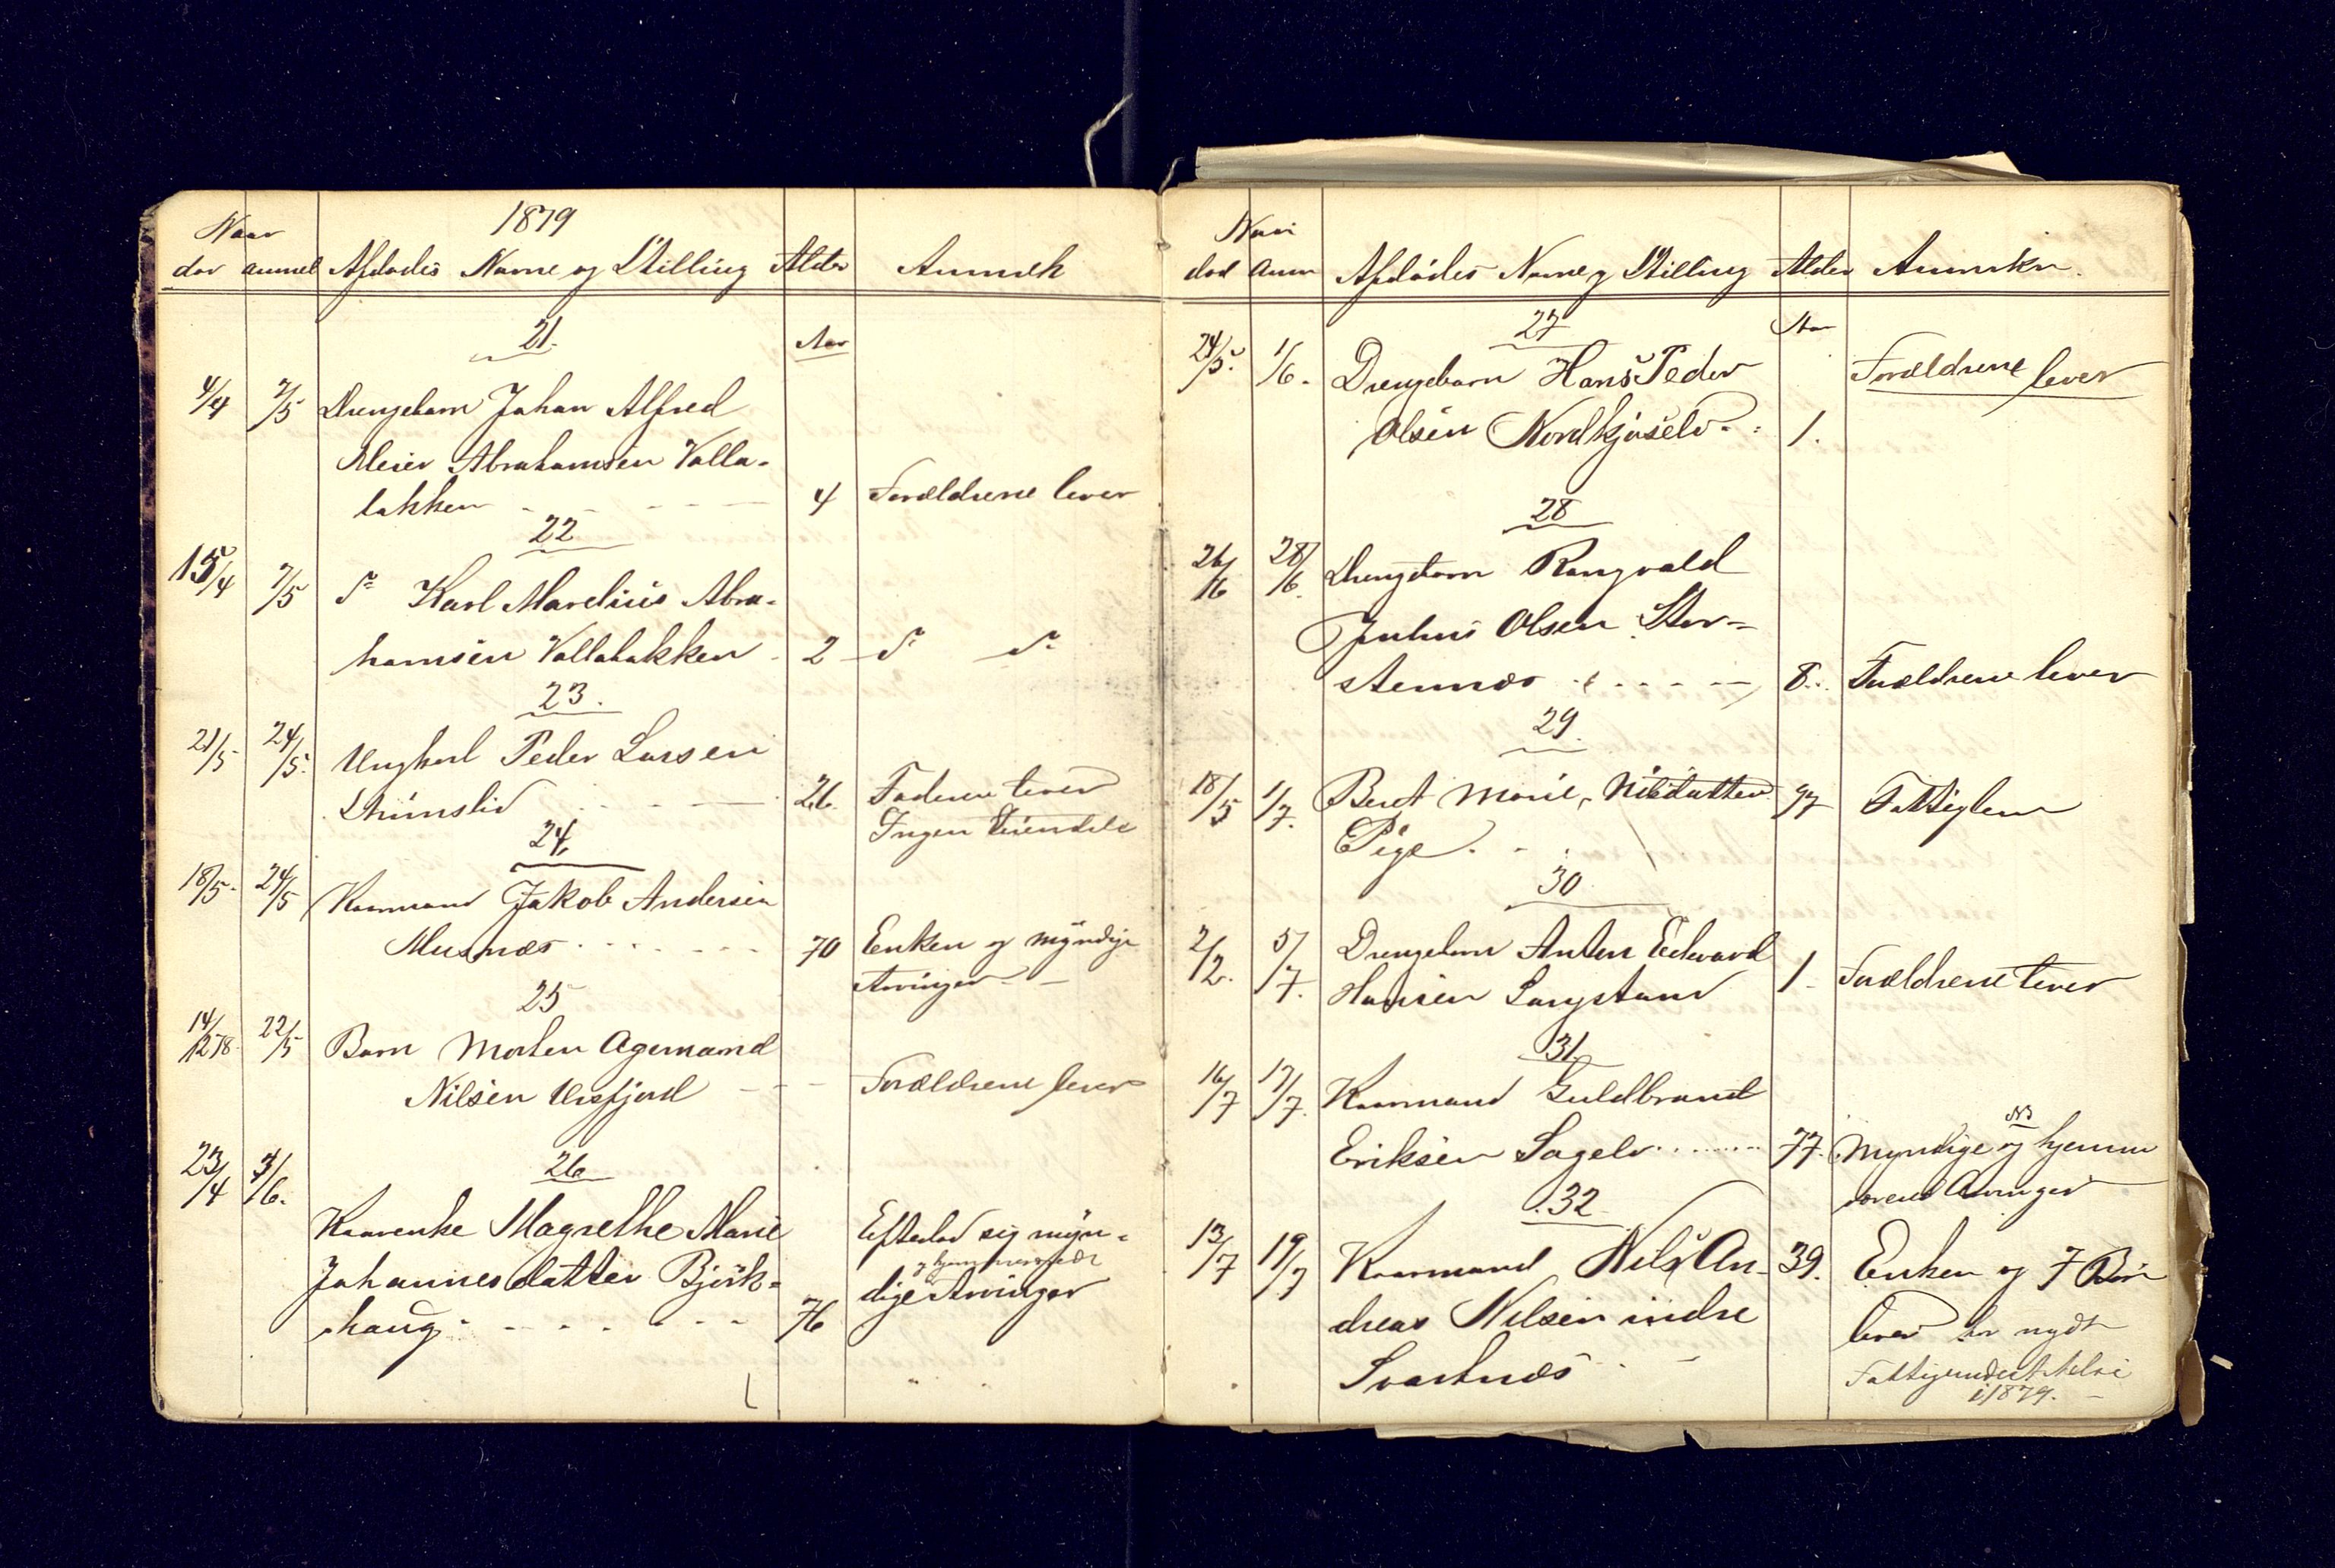 1879
Naar
død anmel Afdødes Navne og Stilling Alder Anmerk
21. Aar
4/4 7/5 Drengebarn Johan Alfred
Meier Abrahamsen Valla-
bakken - - - - 4 Forældrene lever
22
15/4 7/5 do Karl Marelius Abra-
hamsen Vallabakken - 2 do do
23.
21/5 24/5. Ungkarl Peder Larsen
26. Faderen lever
Ingen Eiendele
24.
18/5. 24/5 Kaarmand Jakob Andersen
Musnæs - - - - 70 Enken og myndige
Arvinger -
25
14/12 78 22/5 Barn Morten Agemand
Nilsen Ursfjord - - - Forældrene lever
26
23/4 3/6. Kaarenke Magrethe Marie Efterlod sig myn-
Johannesdatter Bjørk- dige Arvinger
haug - - - - 76
Naar
død Anm Afdødes Navne og Stilling Alder Anmerkn.
27 Aar
24/5. 1/6. Drengebarn Hans Peder Forældrene lever
Olsen Nordkjoselv - 1.
28
26/6 28/6. Drengebarn Rangvald
Julius Olsen Stor-
stennæs - - - - 8. Forældrene lever
29.
18/5 1/7. Beret Marie Nilsdatter 97 Fattiglem
Pige. - .
30
2/2. 5/7. Drengebarn Anton Edvard
Hansen Langstand 1 - Forældrene lever
31
16/7 17/7. Kaarmand Guldbrand
Eriksen Sagelv ........ 77. Myndige og hjemme
værende Arvinger
32
13/7 19/7 Kaarmand Nils An- 39. Enken og 7 Børn
dreas Nilsen indre lever har nydt
Svartnæs - Fattigunderstøttelse
i 1879. -